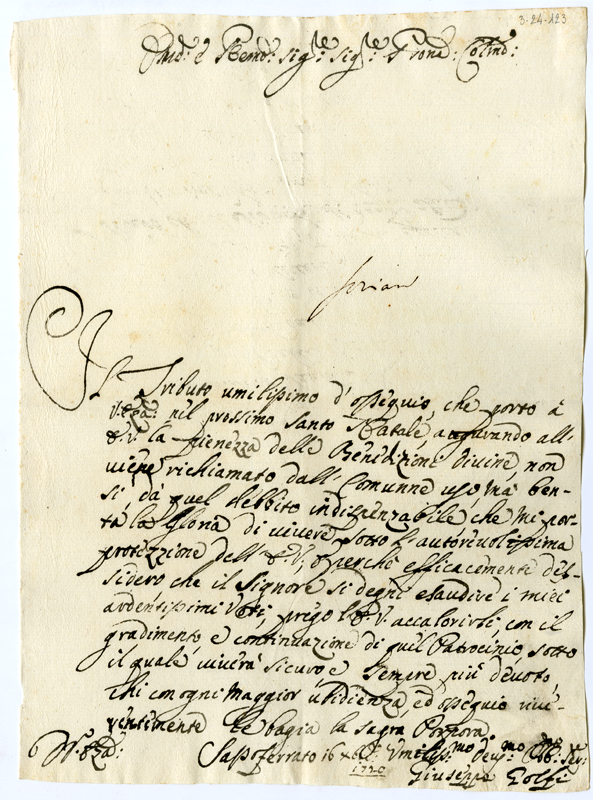 3-24-123
Em̃o: e Reṽdo: Sig:re Sig:re Prone: Col̃mo:
Il Tributo umilissimo d'ossequio, che porto à
V: E͂za: nel prossimo Santo Natale, augurando all'
E.V. la pienezza delle Benedizioni divine, non
viene richiamato dall'Comunne uso, mà ben-
si dà quel debbito indispenzabile che mi por-
ta la Gloria di vivere sotto l'autorevolissima
protezzione dell'E.V., e perche efficacemente de-
sidero che il Signore si degni esaudire i miei
ardentissimi Voti, prego l'E.V. accalorirli con il
gradimento e continuazione di quel Patrocinio, sotto
il quale viverà sicuro e sempre più devoto
chi con ogni maggior ubidienza ed ossequio rive-
rentemente Le bagia la sagra Porpora
Sassoferrato 16 Xbr: Umiliss:mo dev:mo Obb:mo Ser:
1720
Giuseppe Golfi